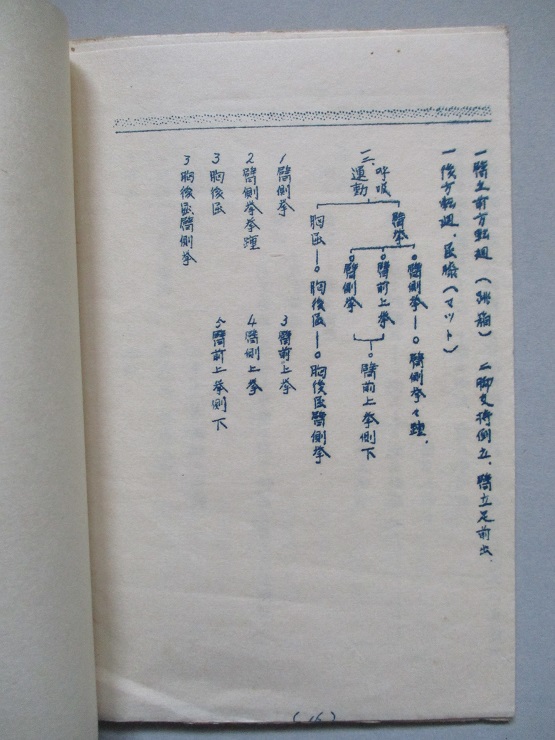 一臂立前方転廻（跳箱） 二脚支持倒立、臂立足前出、
一後方転廻、長膝（マット）
三、呼吸運動
臂挙
臂側挙―臂側挙々踵、
臂前上挙
臂側挙
臂前上挙側下
胸後―胸後屈―胸後屈臂側挙
1 臂側挙
3 臂前上挙
2 臂側挙挙踵
4 臂側上挙
3 胸後屈
5 臂前上挙側下
3 胸後屈臂側挙
(16)